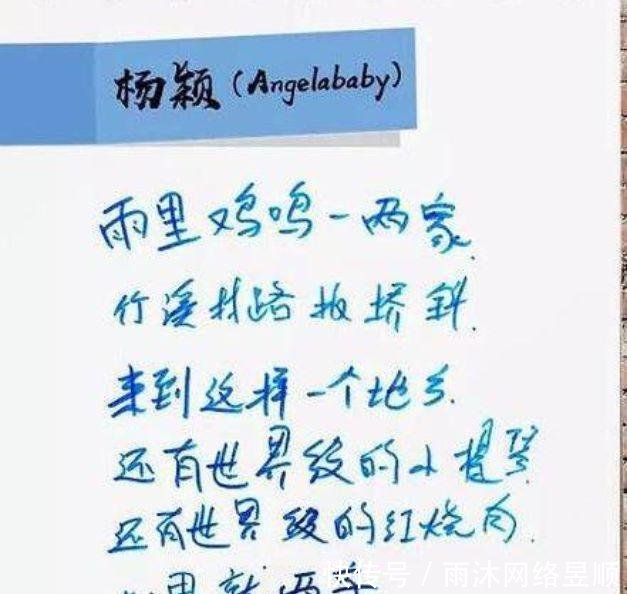 杨颖（Angelababy）
雨里鸡鸣一两家.
竹溪村路板桥斜.
来到这样一个地方.
还有世界级的小提琴.
还有世界级的红烧肉.
快传号 / 雨沐网络昱顺